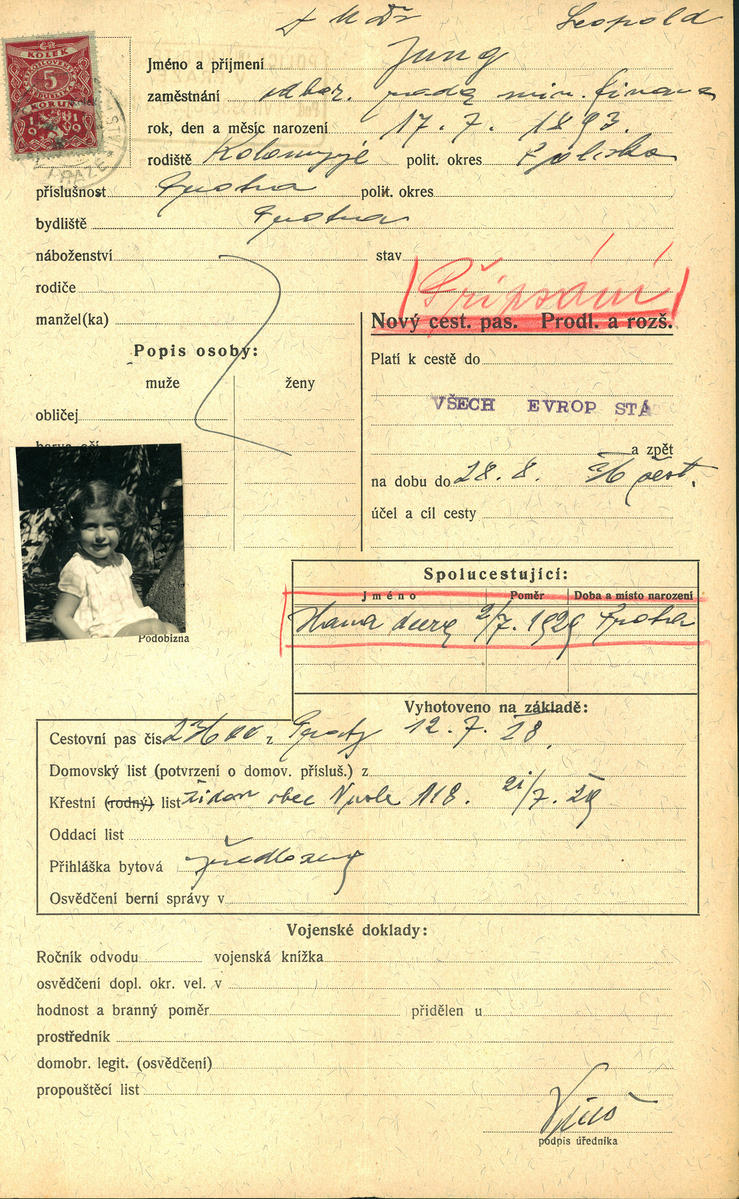 Leopold
Jméno a příjmení Jung
zaměstnání odbor. rada min. financí
rok, den a měsíc narození 17. 7. 1893.
rodiště Kolomyje polit. okres
příslušnost Praha polit. okres
bydliště Praha
náboženství stav
rodiče
Připsání
manžel(ka)
Nový cest. pas. Prodl. a rozš.
Popis osoby:
muže ženy
Platí k cestě do
VŠECH EVROP STÁ
obličej
a zpět
na dobu do 28. 8.
účel a cíl cesty
Podobizna
Spolucestující:
Jméno Poměr Doba a místo narození
Hana 2/7. 1929 Praha
Vyhotoveno na základě:
Cestovní pas čís. 12. 7. 28.
Domovský list (potvrzení o domov. přísluš.) z
Křestní (rodný) list židov. obec 118. 7. 29
Oddací list
Přihláška bytová
Osvědčení berní správy v
Vojenské doklady:
Ročník odvodu vojenská knížka
osvědčení dopl. okr. vel. v
hodnost a branný poměr přidělen u
prostředník
domobr. legit. (osvědčení)
propouštěcí list
podpis úředníka
KOLEK
5
KORUN
1919
PRAZE